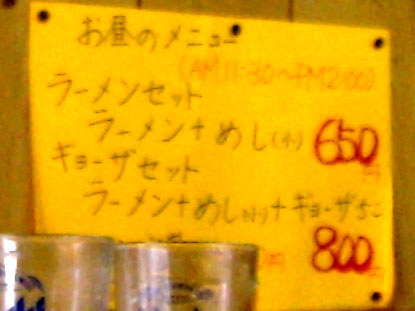 お昼のメニュー
(AM11:30～PM2:00)
ラーメンセット
ラーメン+めし(小) 650円
ギョーザセット
ラーメン+めし(小)+ギョーザ5こ
800円